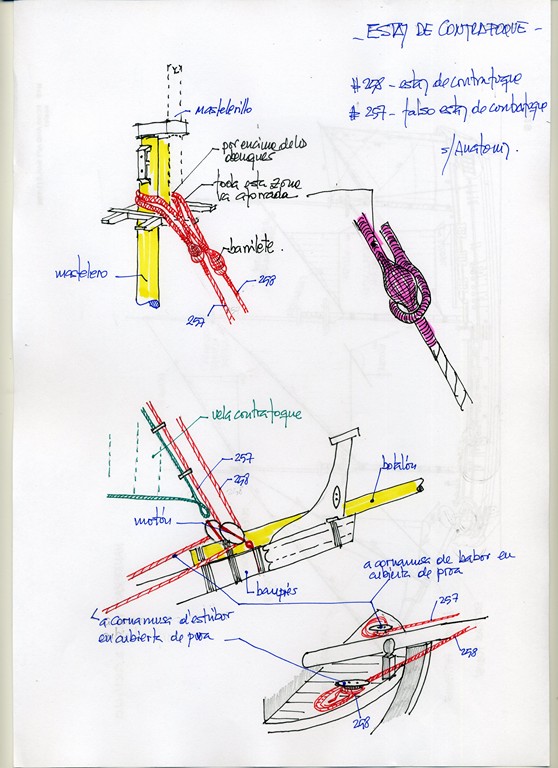 - ESTAY DE CONTRAFOQUE -
# 258 - estay de contrafoque
# 257 - falso estay de contrafoque
s/Anatomy.
mastelerillo
por encima de los
obenques
toda esta zona
va aforrada
barrilete.
mastelero
258
257
vela contrafoque
257
258
botalón
motón
bauprés
a cornamusa de babor en
cubierta de proa
a cornamusa d'estribor
en cubierta de proa
257
258
258